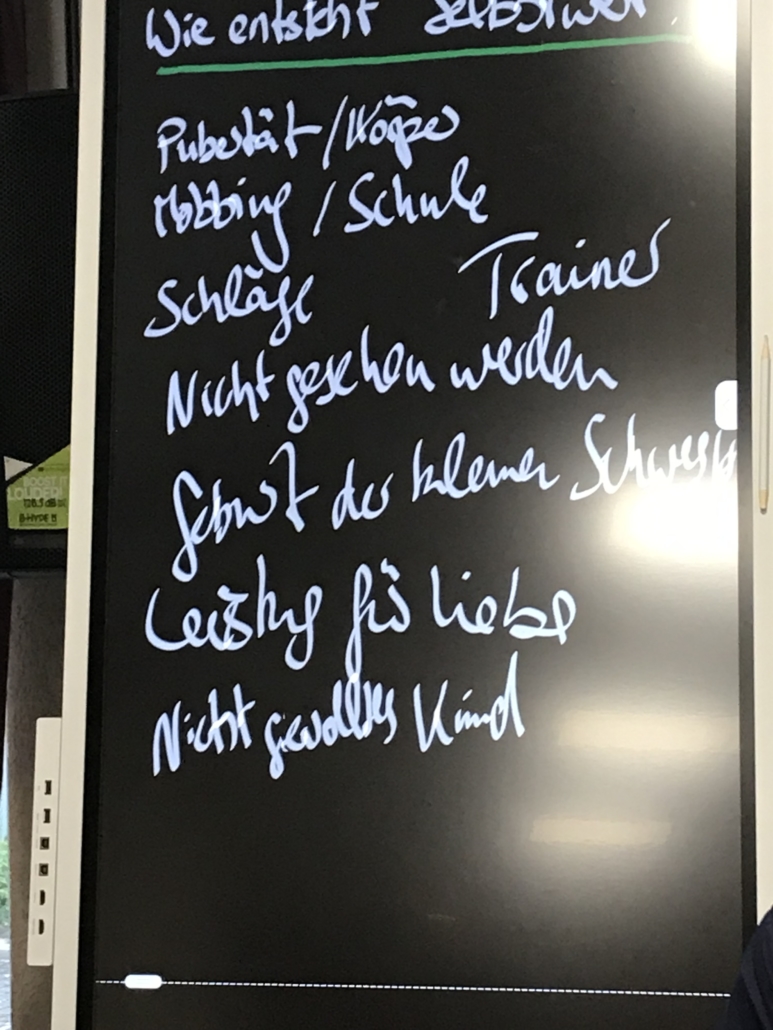 Wie entsteht Selbstwert?
Pubertät/Körper
Mobbing / Schule
Schläge Trainer
Nicht gesehen werden
Geburt der kleinen Schwest
Leistung für Liebe
Nicht gewolltes Kind
BOOST IT
LOUDER!
B-HYPE M